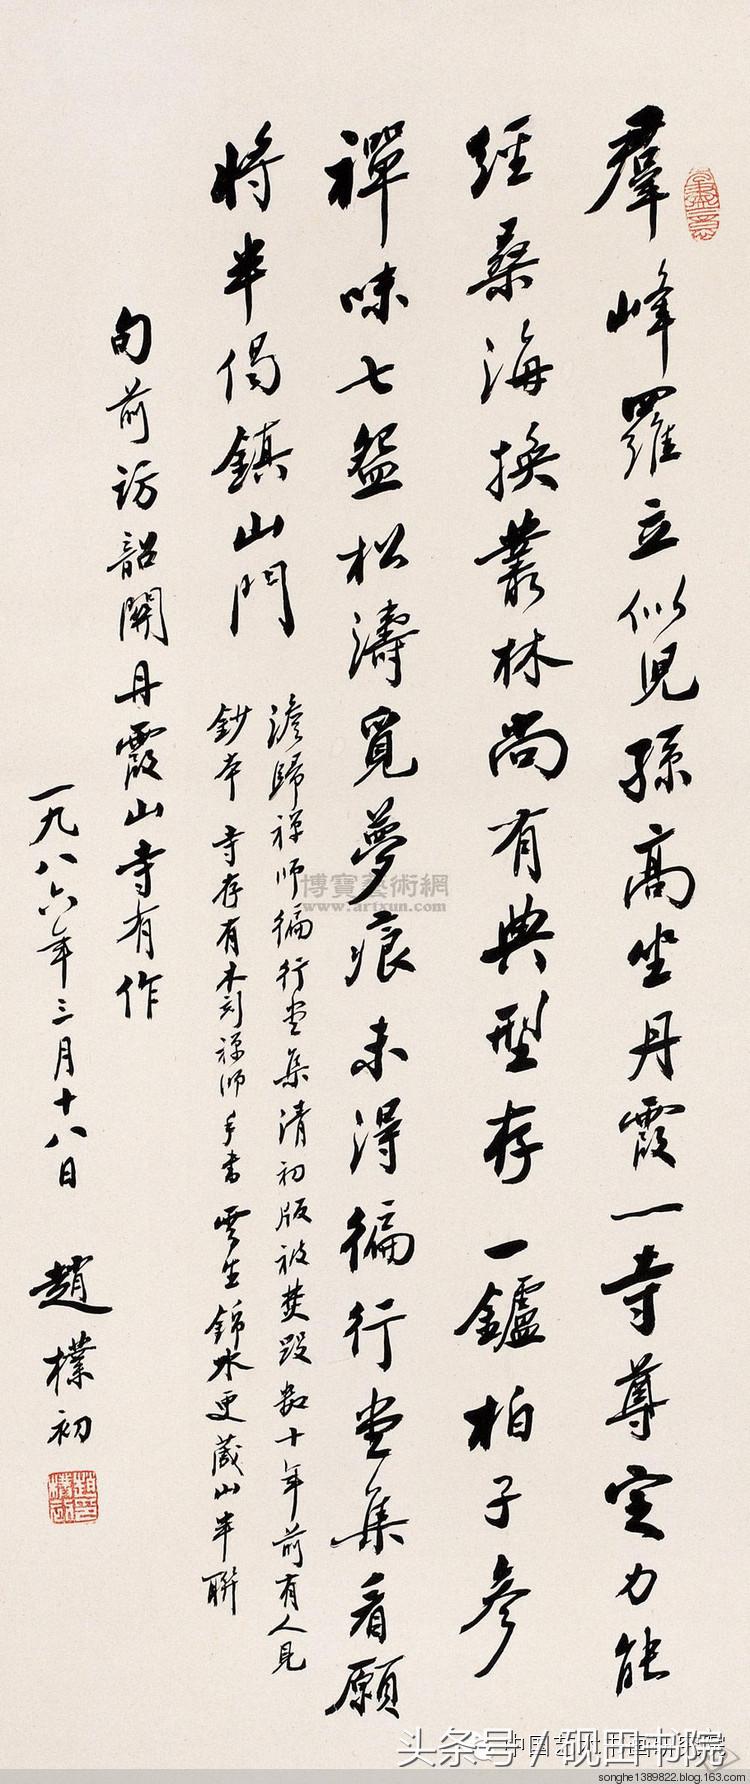 羣峰羅立似兒孫高坐丹霞一寺尊定力能
經桑海換叢林尚有典型存一鑪柏子參
禪味七盌松濤覓夢痕未得徧行堂集看願
將半偈鎮山門
澹歸禪師徧行堂集清初版被焚毀數十年前有人見
鈔本寺存有木刻禪師手書雲生錦水更藏山半聯
旬前訪韶關丹霞山寺有作
一九八六年三月十八日
趙樸初
博寶藝術網
www.artxun.com
头条号/砚田书院
songhe1389822.blog.163.com